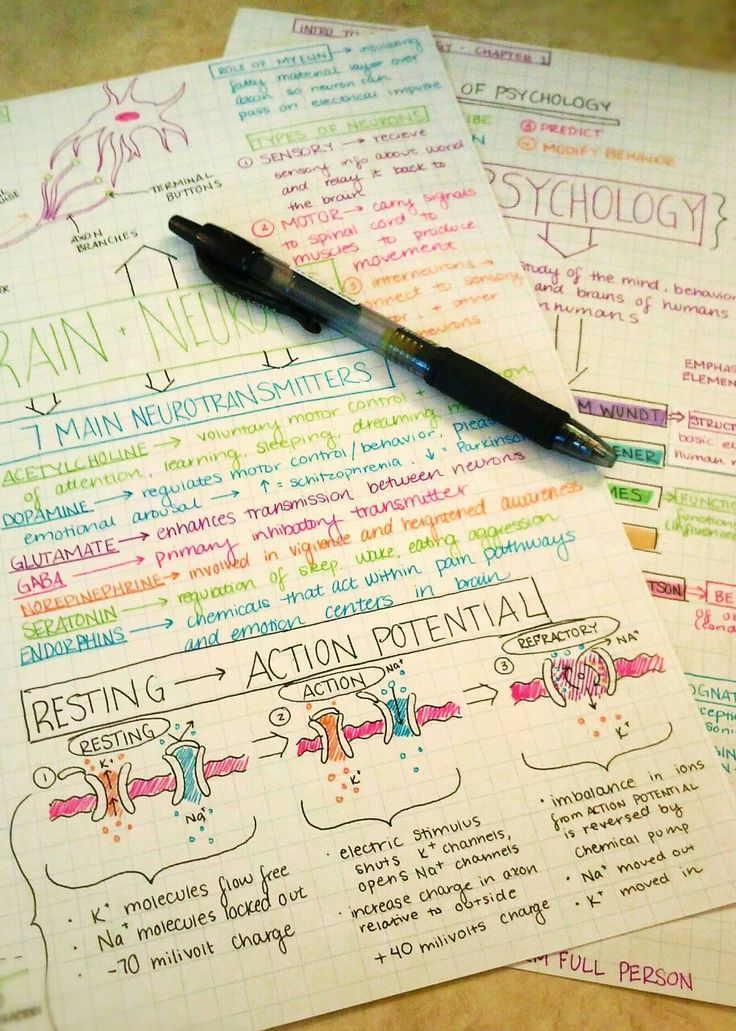 ROLE OF MYELIN → insulating
fatty material layer over
axon so neuron can
pass on electrical impulse
TYPES OF NEURONS
① SENSORY → recieve
sensory info about world
and relay it back to
the brain
② MOTOR → carry signals
to spinal cord to
muscles to produce
movement
③ interneurons →
connect to sensory
+ other
neurons
TERMINAL
BUTTONS
AXON
BRANCHES
RAIN + NEURO
7 MAIN NEUROTRANSMITTERS
ACETYLCHOLINE → voluntary motor control +
of attention, learning, sleeping, dreaming
DOPAMINE → regulates motor control/behavior, pleas
emotional arousal → ↑ = schitzophrenia. ↓ = Parkinson
GLUTAMATE → enhances transmission between neurons
GABA → primary inhibitory transmitter
NOREPINEPHRINE → involved in vigilence and heightened awareness
SERATONIN → regulation of sleep, wake, eating, aggression
ENDORPHINS → chemicals that act within pain pathways
and emotion centers in brain
RESTING → ACTION POTENTIAL
① RESTING
K⁺
Na⁺
· K⁺ molecules flow free
· Na⁺ molecules locked out
· -70 milivolt charge
② ACTION
Na⁺
K⁺
· electric stimulus
shuts K⁺ channels,
opens Na⁺ channels
· increase charge in axon
relative to outside
+40 milivolts charge
③ REFRACTORY
Na⁺
K⁺
· imbalance in ions
from ACTION POTENTIAL
is reversed by
chemical pump
· Na⁺ moved out
· K⁺ moved in
INTRO TO
GY · CHAPTER 1
OF PSYCHOLOGY
IBE
③ PREDICT
④ MODIFY BEHAVIOR
PSYCHOLOGY
study of the mind, behavior
and brains of humans
humans
EMPHAS
ELEMEN
M WUNDT
STRUCT
basic el
human m
ENER
MES
FUNCTION
TSON
BE
of o
(cond
OGNAT
ceptio
FULL PERSON